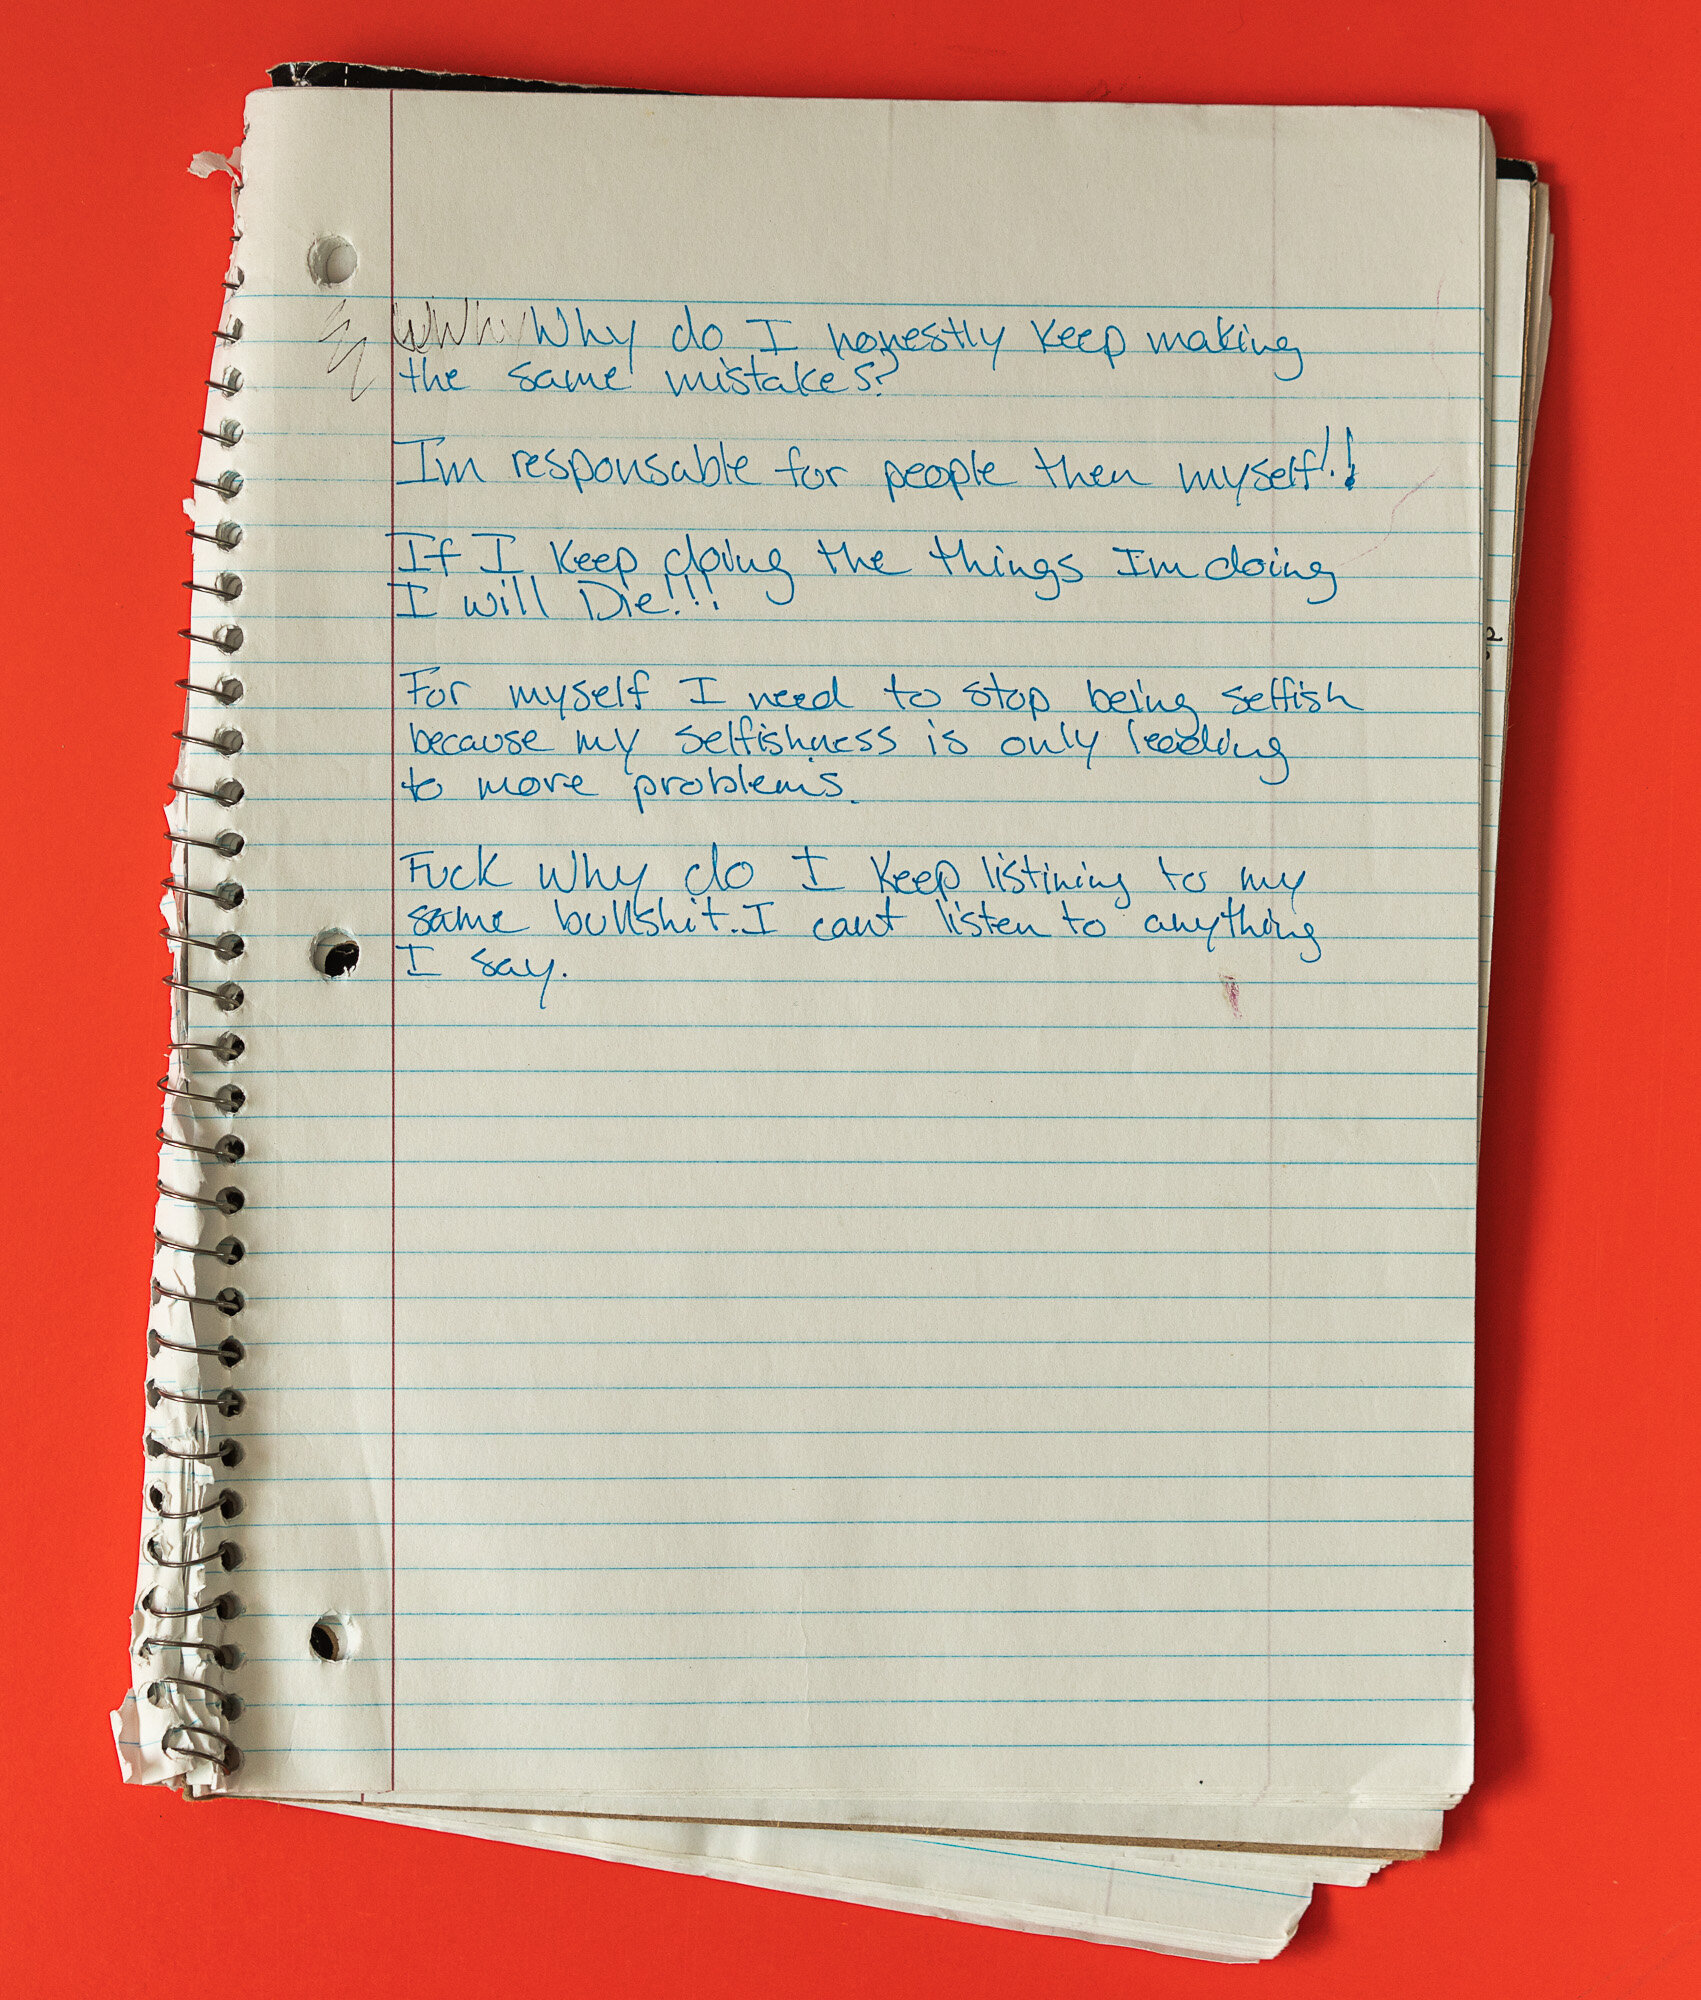 WWhy Why do I honestly keep making
the same mistakes?
Im responsable for people then myself!!
If I keep doing the things Im doing
I will Die!!!
For myself I need to stop being selfish
because my selfishness is only leading
to more problems.
Fuck why do I keep listining to my
same bullshit. I cant listen to anything
I say.